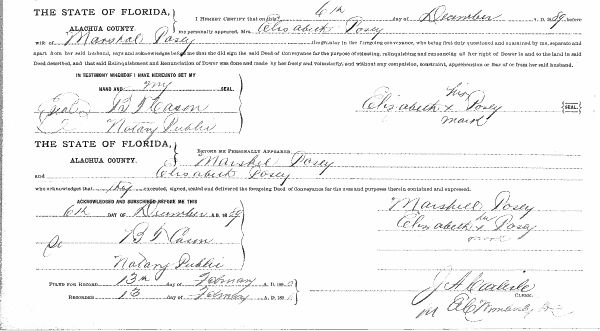 THE STATE OF FLORIDA,
ALACHUA COUNTY.
I HEREBY CERTIFY that on this 6th day of December A. D. 1889, before
me personally appeared, Mrs. Elisabeth Posey
wife of Marshal Posey the grantor in the foregoing conveyance, who being first duly questioned and examined by me, separate and
apart from her said husband, says and acknowledges before me that she did sign the said Deed of Conveyance for the purpose of releasing, relinquishing and renouncing all her right of Dower in and to the land in said
Deed described, and that said Relinquishment and Renunciation of Dower was done and made by her freely and voluntarily, and without any compulsion, constraint, apprehension or fear of or from her said husband.
IN TESTIMONY WHEREOF I HAVE HEREUNTO SET MY
HAND AND my SEAL.
Seal B F Cason
Notary Public
her
Elizabeth x Posey
mark
{SEAL}
THE STATE OF FLORIDA,
ALACHUA COUNTY.
BEFORE ME PERSONALLY APPEARED
Marshel Posey
and Elisabeth Posey
who acknowledged that they executed, signed, sealed and delivered the foregoing Deed of Conveyance for the uses and purposes therein contained and expressed.
ACKNOWLEDGED AND SUBSCRIBED BEFORE ME THIS
6th DAY OF December A. D. 1889
B F Cason
Notary Public
Marshell Posey
her
Elisabeth x Posey
mark
FILED FOR RECORD 13th day of February A. D. 18
RECORDED 13 day of February A. D. 18
J A Carlisle
CLERK.